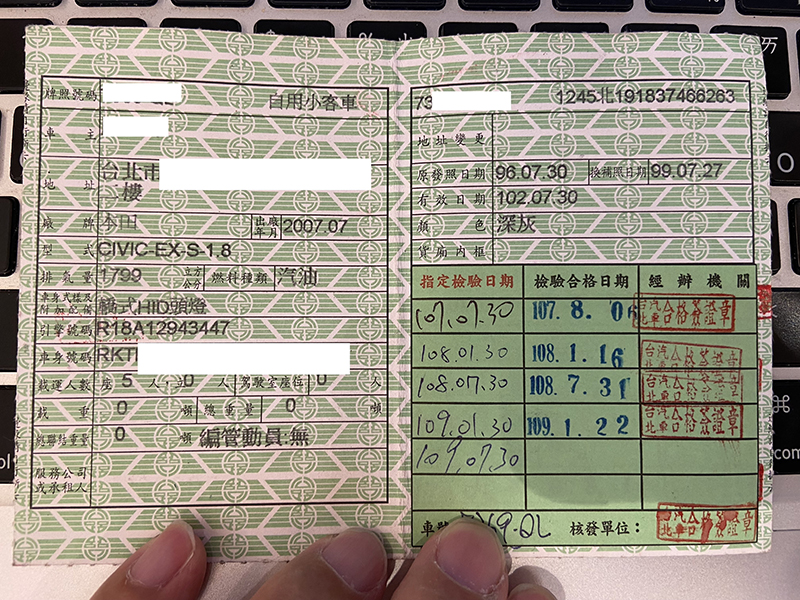 牌照號碼 自用小客車
車主
地址 台北市
二樓
廠牌 本田 出廠年月 2007.07
型式 CIVIC-EX-S-1.8
排氣量 1799 立方公分 燃料種類 汽油
車身式樣及附加配備 轎式HID頭燈
引擎號碼 R18A12943447
車身號碼 RKT
載運人數 座 5 人,立 0 人 駕駛室座位 0 人
載重 0 噸 總重量 0 噸
總聯結重量 0 噸 編管動員:無
服務公司或承租人
73 1245北191837466263
地址變更
原發照日期 96.07.30 換補照日期 99.07.27
有效日期 102.07.30
顏色 深灰
貨廂內框
指定檢驗日期 檢驗合格日期 經辦機關
107.07.30 107.8.06 台北汽車 合格簽證章
108.01.30 108.1.16
108.07.30 108.7.31
109.01.30 109.1.22
109.07.30
車號 核發單位: